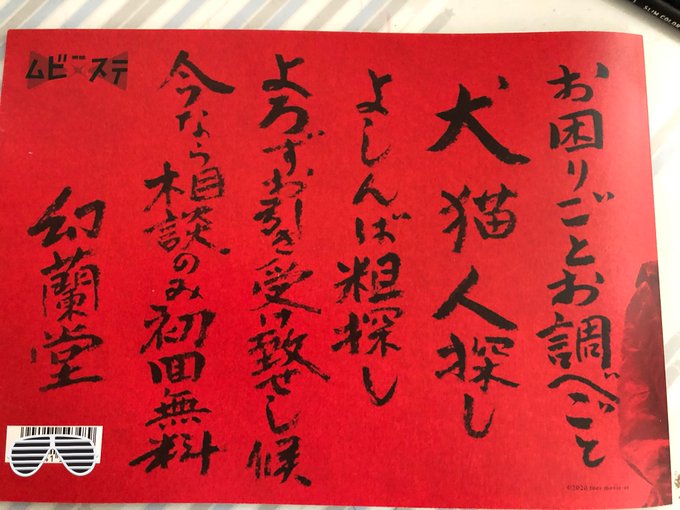 お困りごとお調べごと
犬猫人探し
よしんば粗探し
よろずお引き受け致せし候
今なら相談のみ初回無料
幻蘭堂
ムビ×ステ
SLIM COLOR